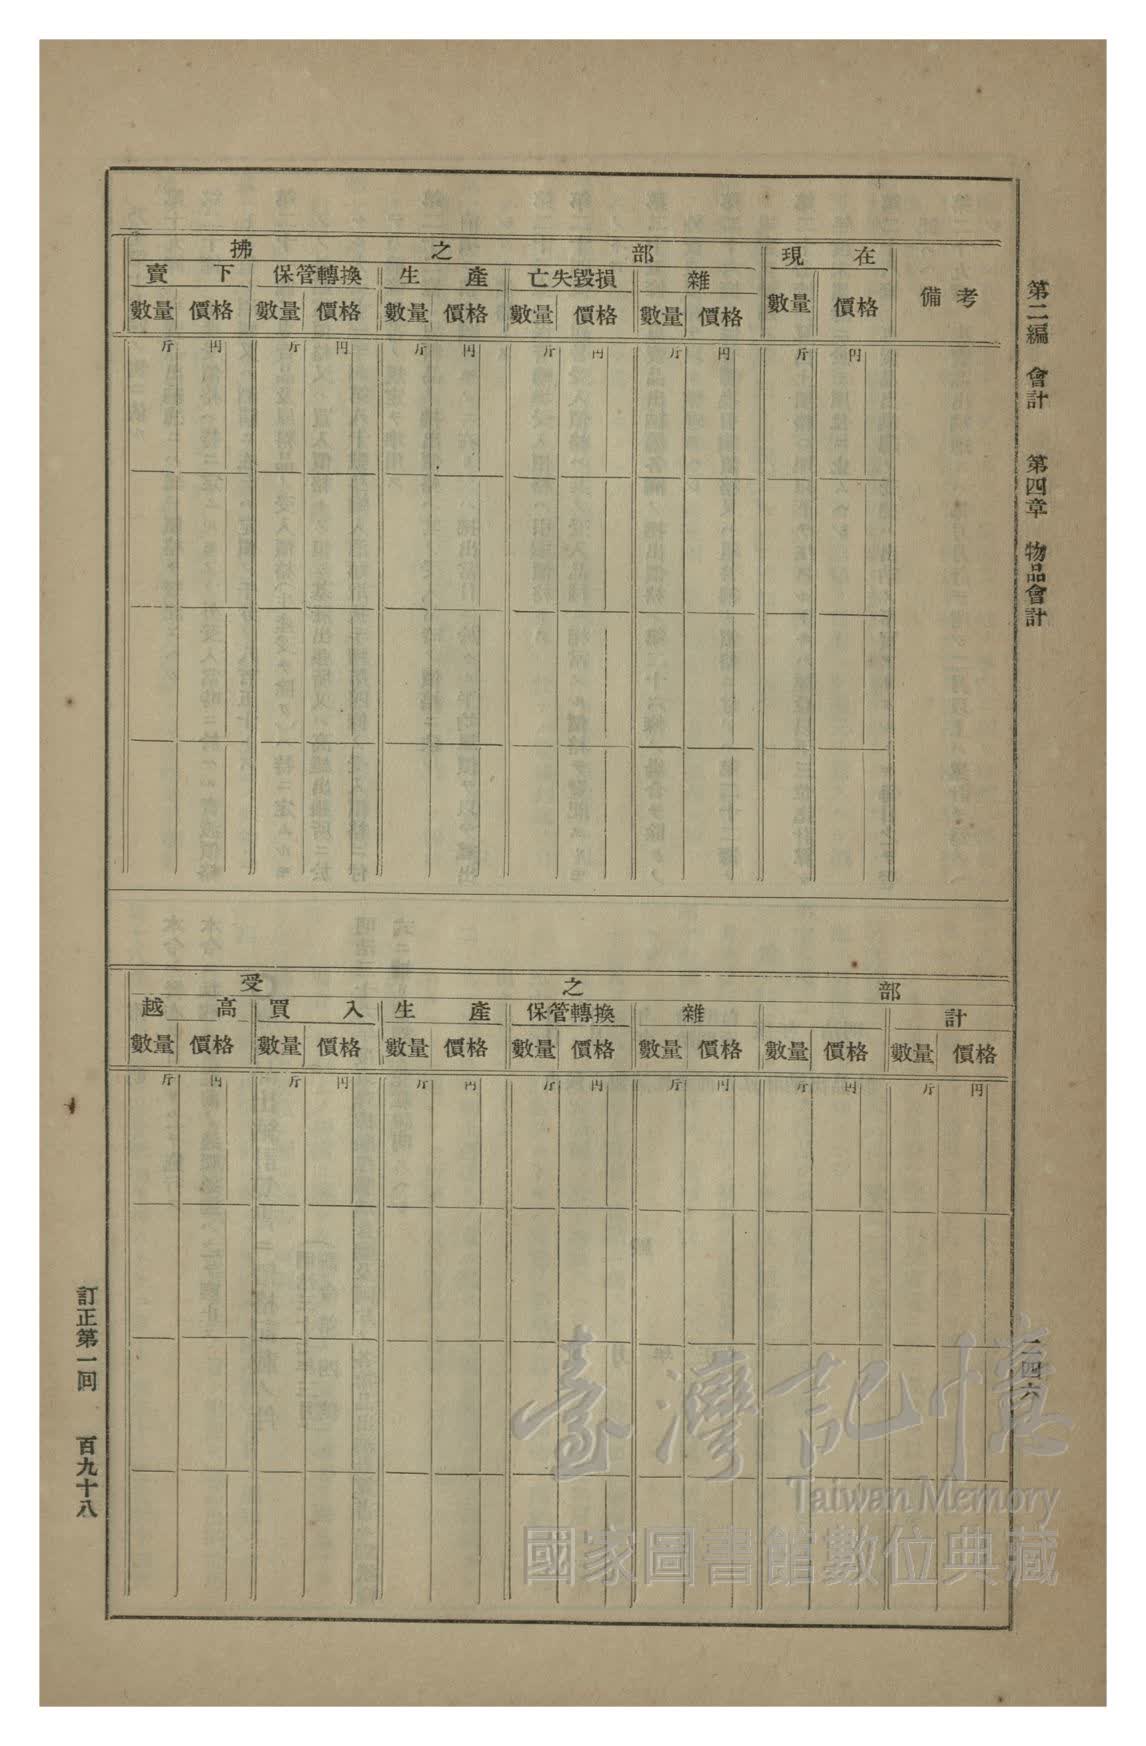 第二編　會計　　第四章　物品會計
二四六
拂之部　現在　備考
賣下　保管轉換　生產　亡失毀損　雜　數量　價格
數量　價格　數量　價格　數量　價格　數量　價格　數量　價格
斤　円　斤　円　斤　円　斤　円　斤　円　斤　円
受之部
越高　買入　生產　保管轉換　雜　計
數量　價格　數量　價格　數量　價格　數量　價格　數量　價格　數量　價格　數量　價格
斤　円　斤　円　斤　円　斤　円　斤　円　斤　円　斤　円
訂正第一回　百九十八
臺灣記憶
Taiwan Memory
國家圖書館數位典藏